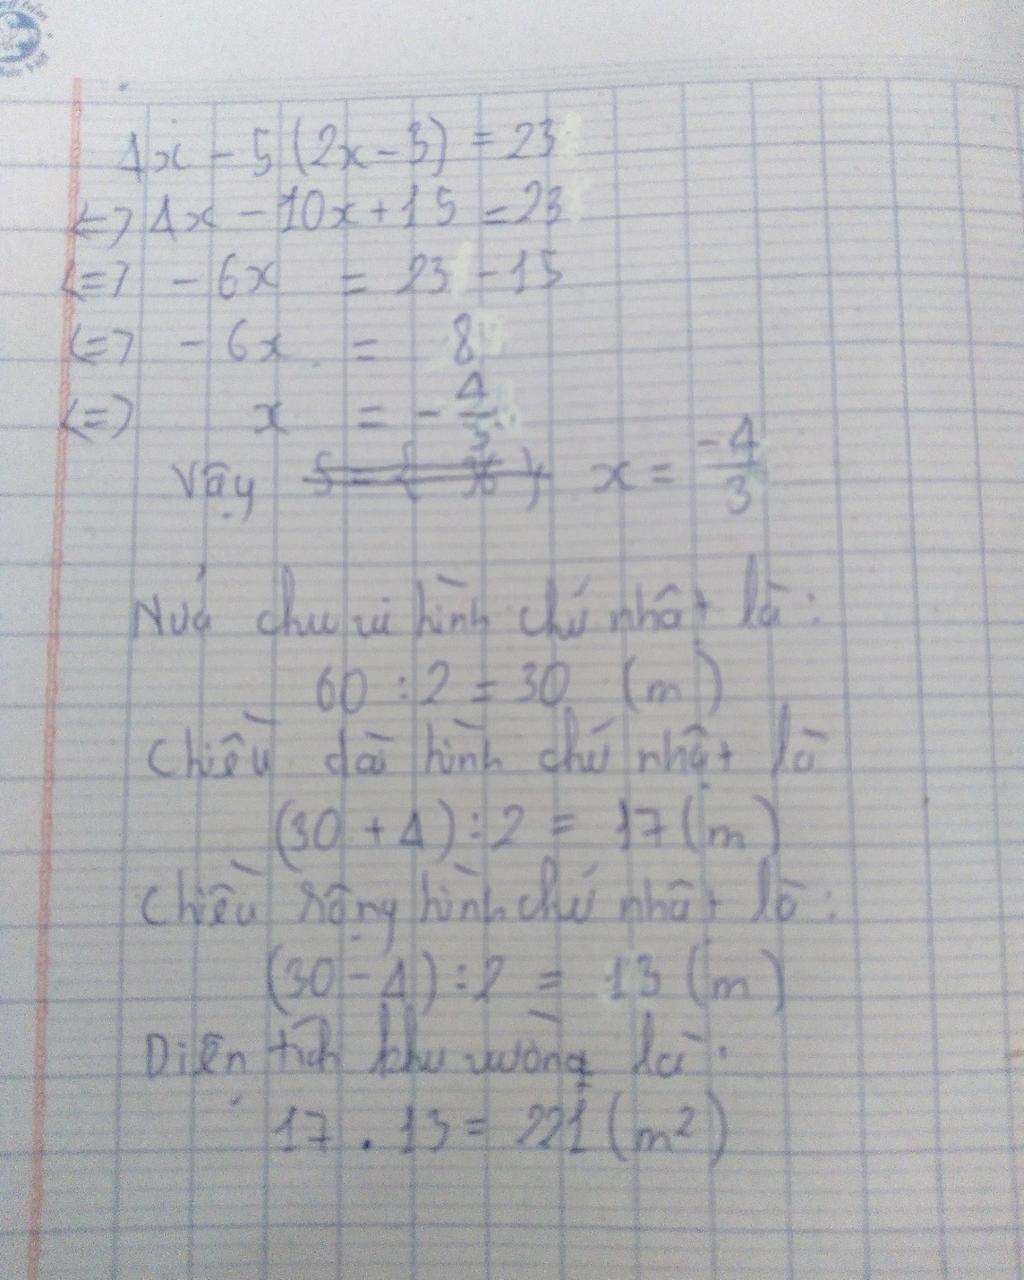 4x - 5(2x - 3) = 23
<=> 4x - 10x + 15 = 23
<=> - 6x = 23 - 15
<=> - 6x = 8
<=> x = - 4/3
Vậy x = -4/3
Nửa chu vi hình chữ nhật là :
60 : 2 = 30 (m)
Chiều dài hình chữ nhật là
(30 + 4) : 2 = 17 (m)
Chiều rộng hình chữ nhật là :
(30 - 4) : 2 = 13 (m)
Diện tích khu vườn là :
17 . 13 = 221 (m²)